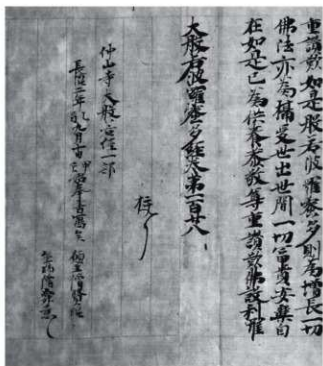 重讃歎如是般若波羅蜜多則為增長一切
佛法亦為攝受世出世間一切富貴安樂自
在如是已為供養恭敬等重讃歎佛設利羅
大般若波羅蜜多經卷第一百廿八
仲山寺大般若経一部
二年 九月十日